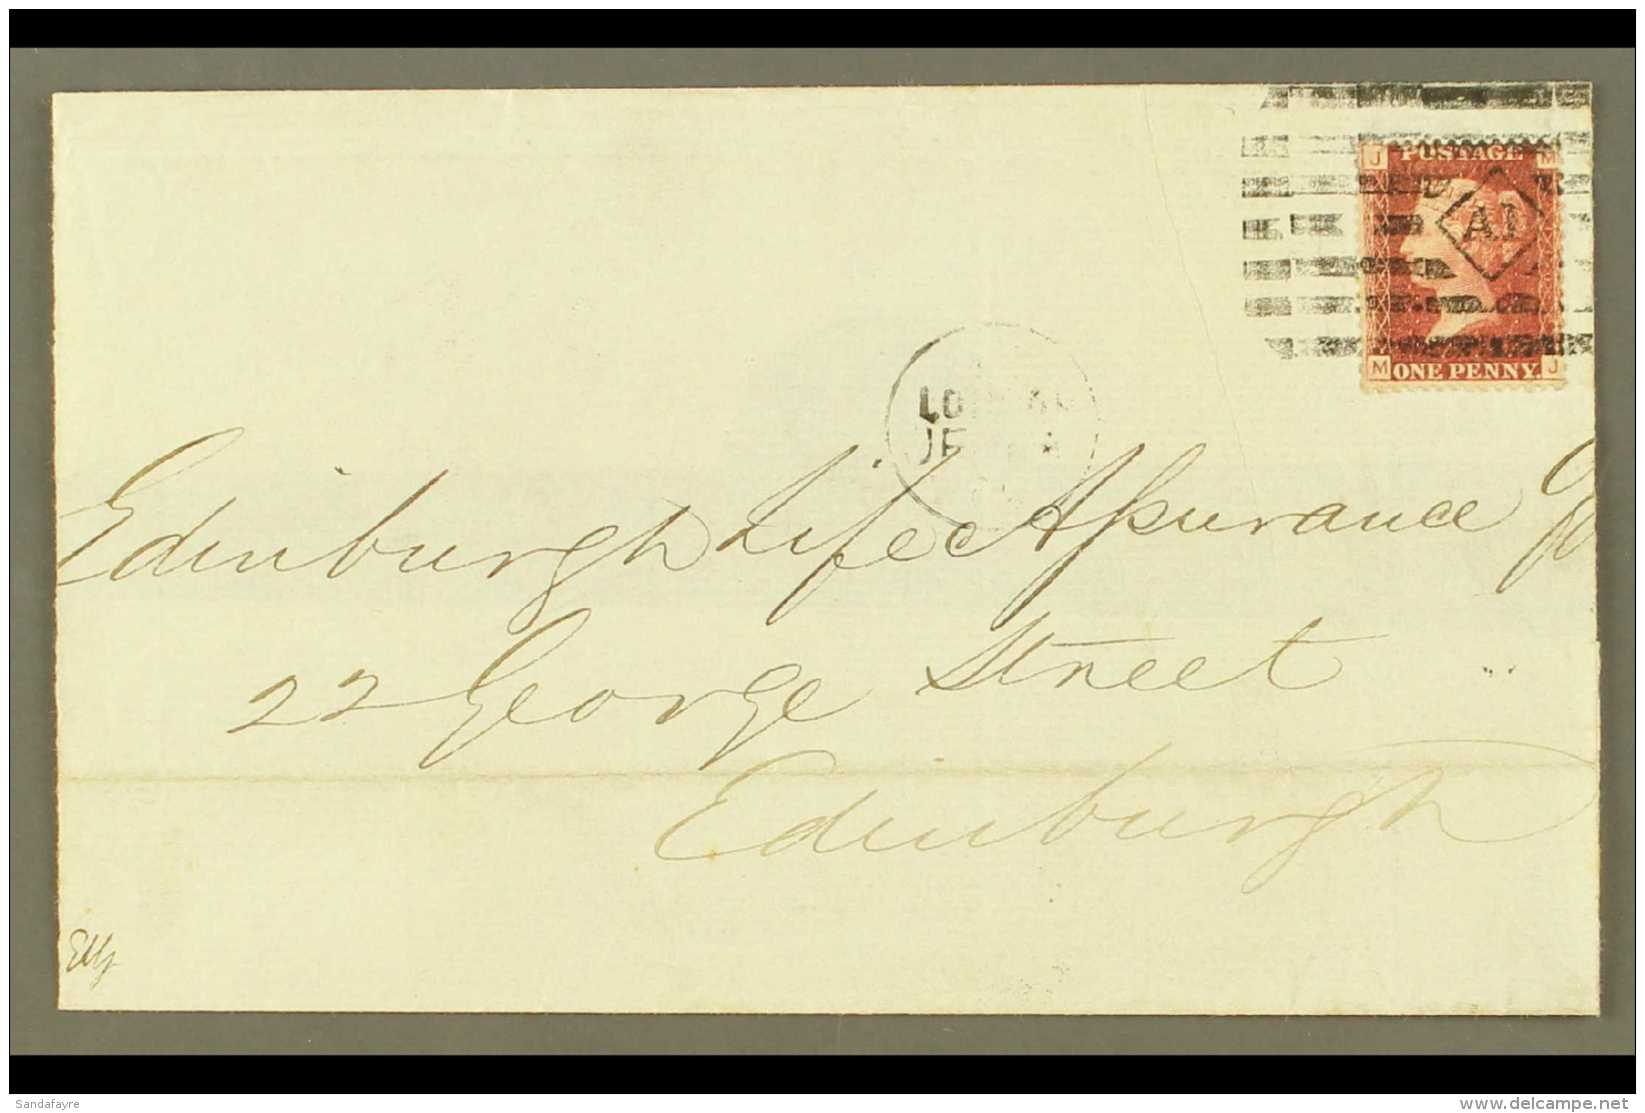 J POSTAGE M
A1
M ONE PENNY. J
LONDON
Edinburgh Life Assurance
22 George Street
Edinburgh
Sandafayre
www.delcampe.net